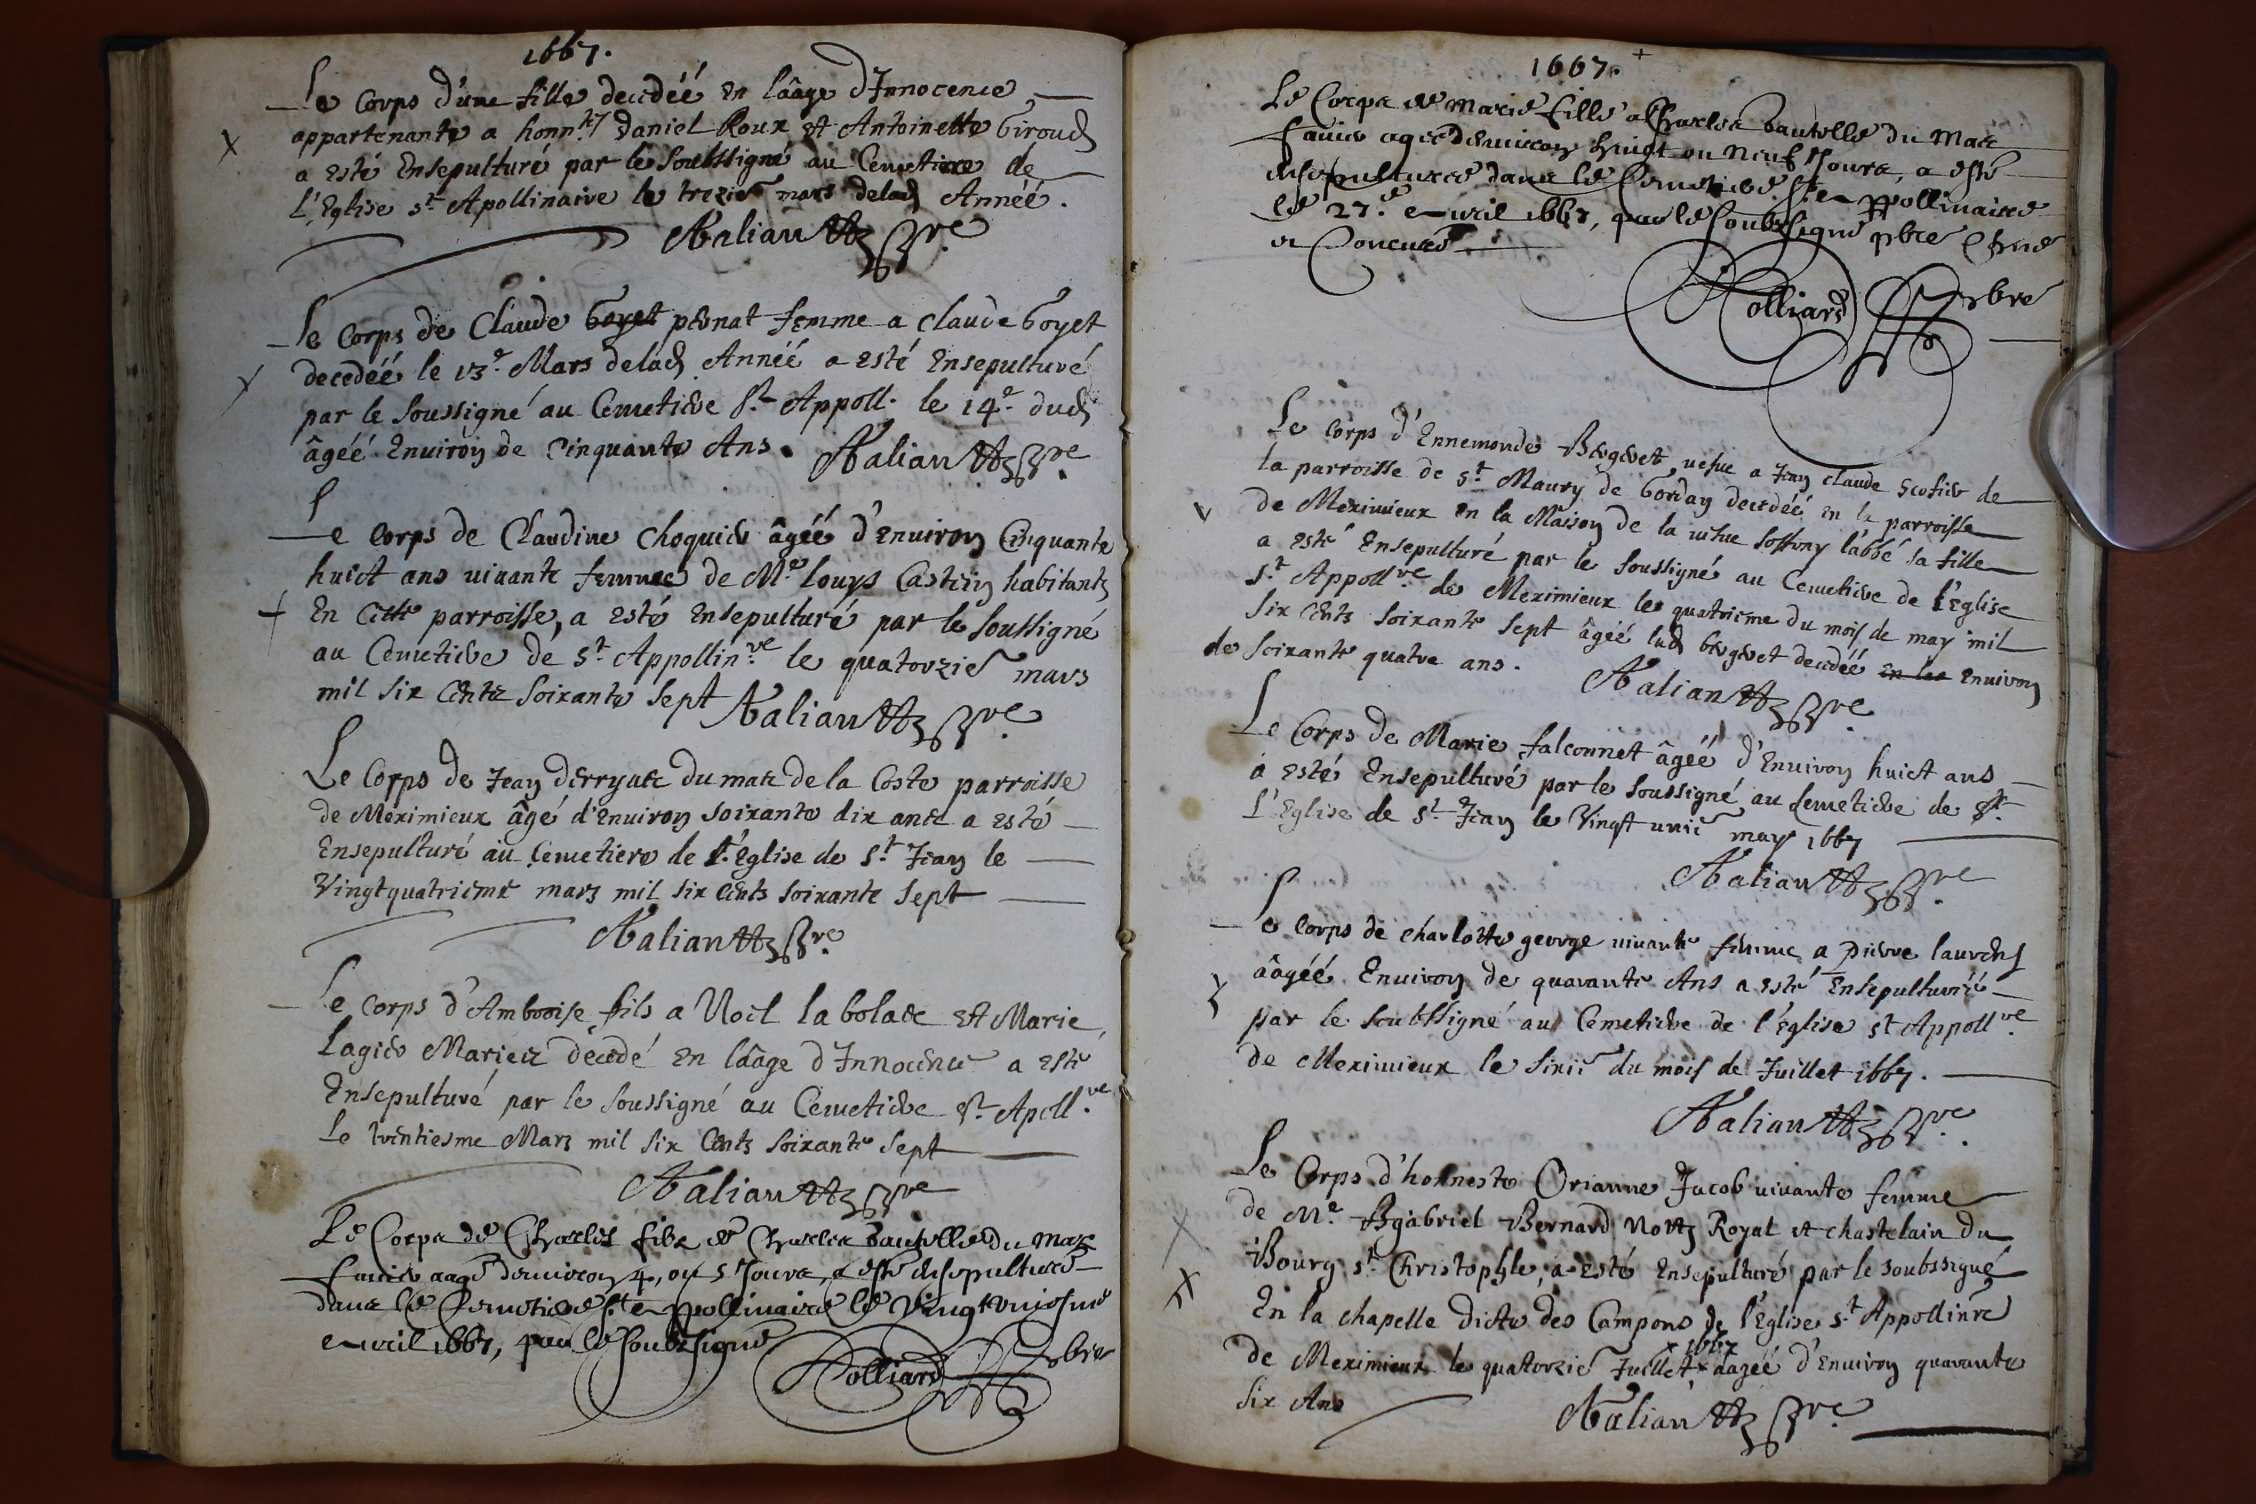 1667.
Le Corps d'une fille decedéé En lâage d'Innocence
appartenante a honn.tes Daniel Roux Et Antoinette Giroud
a Esté Ensepulturé par le Soubssigné au Cemetiere de
L'Eglise st Apollinaire le trezie mars delad Année.
Valian pbre
Le Corps de Claude Goyet pernat femme a Claude Goyet
decedéé le 13e Mars delad Annéé a Esté Ensepulturé
par le Soussigné au Cemetiere St Appoll. le 14e dud
âgéé Enuiron de Cinquante Ans. Valian pbre
Le Corps de Claudine Choquier âgéé d'Enuiron Cinquante
huict ans uiuante femme de Me Louys Castin habitants
En Cette parroisse, a Esté Ensepulturé par le Soussigné
au Cemetiere de St Appollin.re le quatorzie mars
mil Six Cents Soixante Sept Valian pbre
Le Corps de Jean derryate du mate de la Coste parroisse
de Meximieux âgé d'Enuiron Soixante dix ante a Esté
Ensepulturé au Cemetiere de l'Eglise de St Jean le
Vingtquatrieme mars mil Six Cents Soixante Sept
Valian pbre
Le Corps d'Ambroise fils a Noel la bolade Et Marie
Lagier Mariez decedé En lâage d'Innocence a Esté
Ensepulturé par le Soussigné au Cemetiere St Apoll.re
Le trentiesme Mars mil Six Cents Soixante Sept
Valian pbre
Le Corps de Charles filz de Charles du Mas
fauier aagé denuiron 4, ou 5 Jours, a esté ensepulturé
dans le Cemetiere St Appollinaire le Vingtuniesme
Auril 1667, par le Soubzsigné
Rolliard pbre
1667.
Le Corps de Marie fille a Charles du Mas
fauier agée d'enuiron huict ou Neuf Jours, a esté
ensepulturée dans le Cemetiere St Appollinaire
le 27.e Auril 1667, par le Soubzsigné pbre
Rolliard pbre
Le Corps d'Ennemonde Bergeret, uefue a Jean Claude Scofier de
la parroisse de St Maury de Gordan decedéé En la parroisse
de Meximieux En la Maison de la uefue l'abbé Sa fille
a Esté Ensepulturé par le Soussigné au Cemetiere de l'Eglise
St Appoll.re de Meximieux le quatrieme du mois de may mil
Six Cents Soixante Sept âgéé lad bergeret decedéé en les Enuiron
de Soixante quatre ans. Valian pbre
Le Corps de Marie falconnet âgéé d'Enuiron huict ans
a Esté Ensepulturé par le Soussigné au Cemetiere de
L'Eglise de St Jean le Vingt unie may 1667
Valian pbre
Le Corps de Charlotte george uiuante femme a pierre laurens
âagéé Enuiron de quarante Ans a Esté Ensepulturéé
par le Soubssigné au Cemetiere de l'Eglise St Appoll.re
de Meximieux le Sixie du mois de Juillet 1667.
Valian pbre
Le Corps d'honneste Orianne Jacob uiuante femme
de Me Gabriel Bernard Nott Royal et chastelain du
Bourg St Christophle, a Esté Ensepulturé par le soubssigné
En la chapelle dicte des Campons de l'Eglise St Appollinre
de Meximieux le quatorzie Juillet 1667 âagéé d'Enuiron quarante
Six Ans Valian pbre